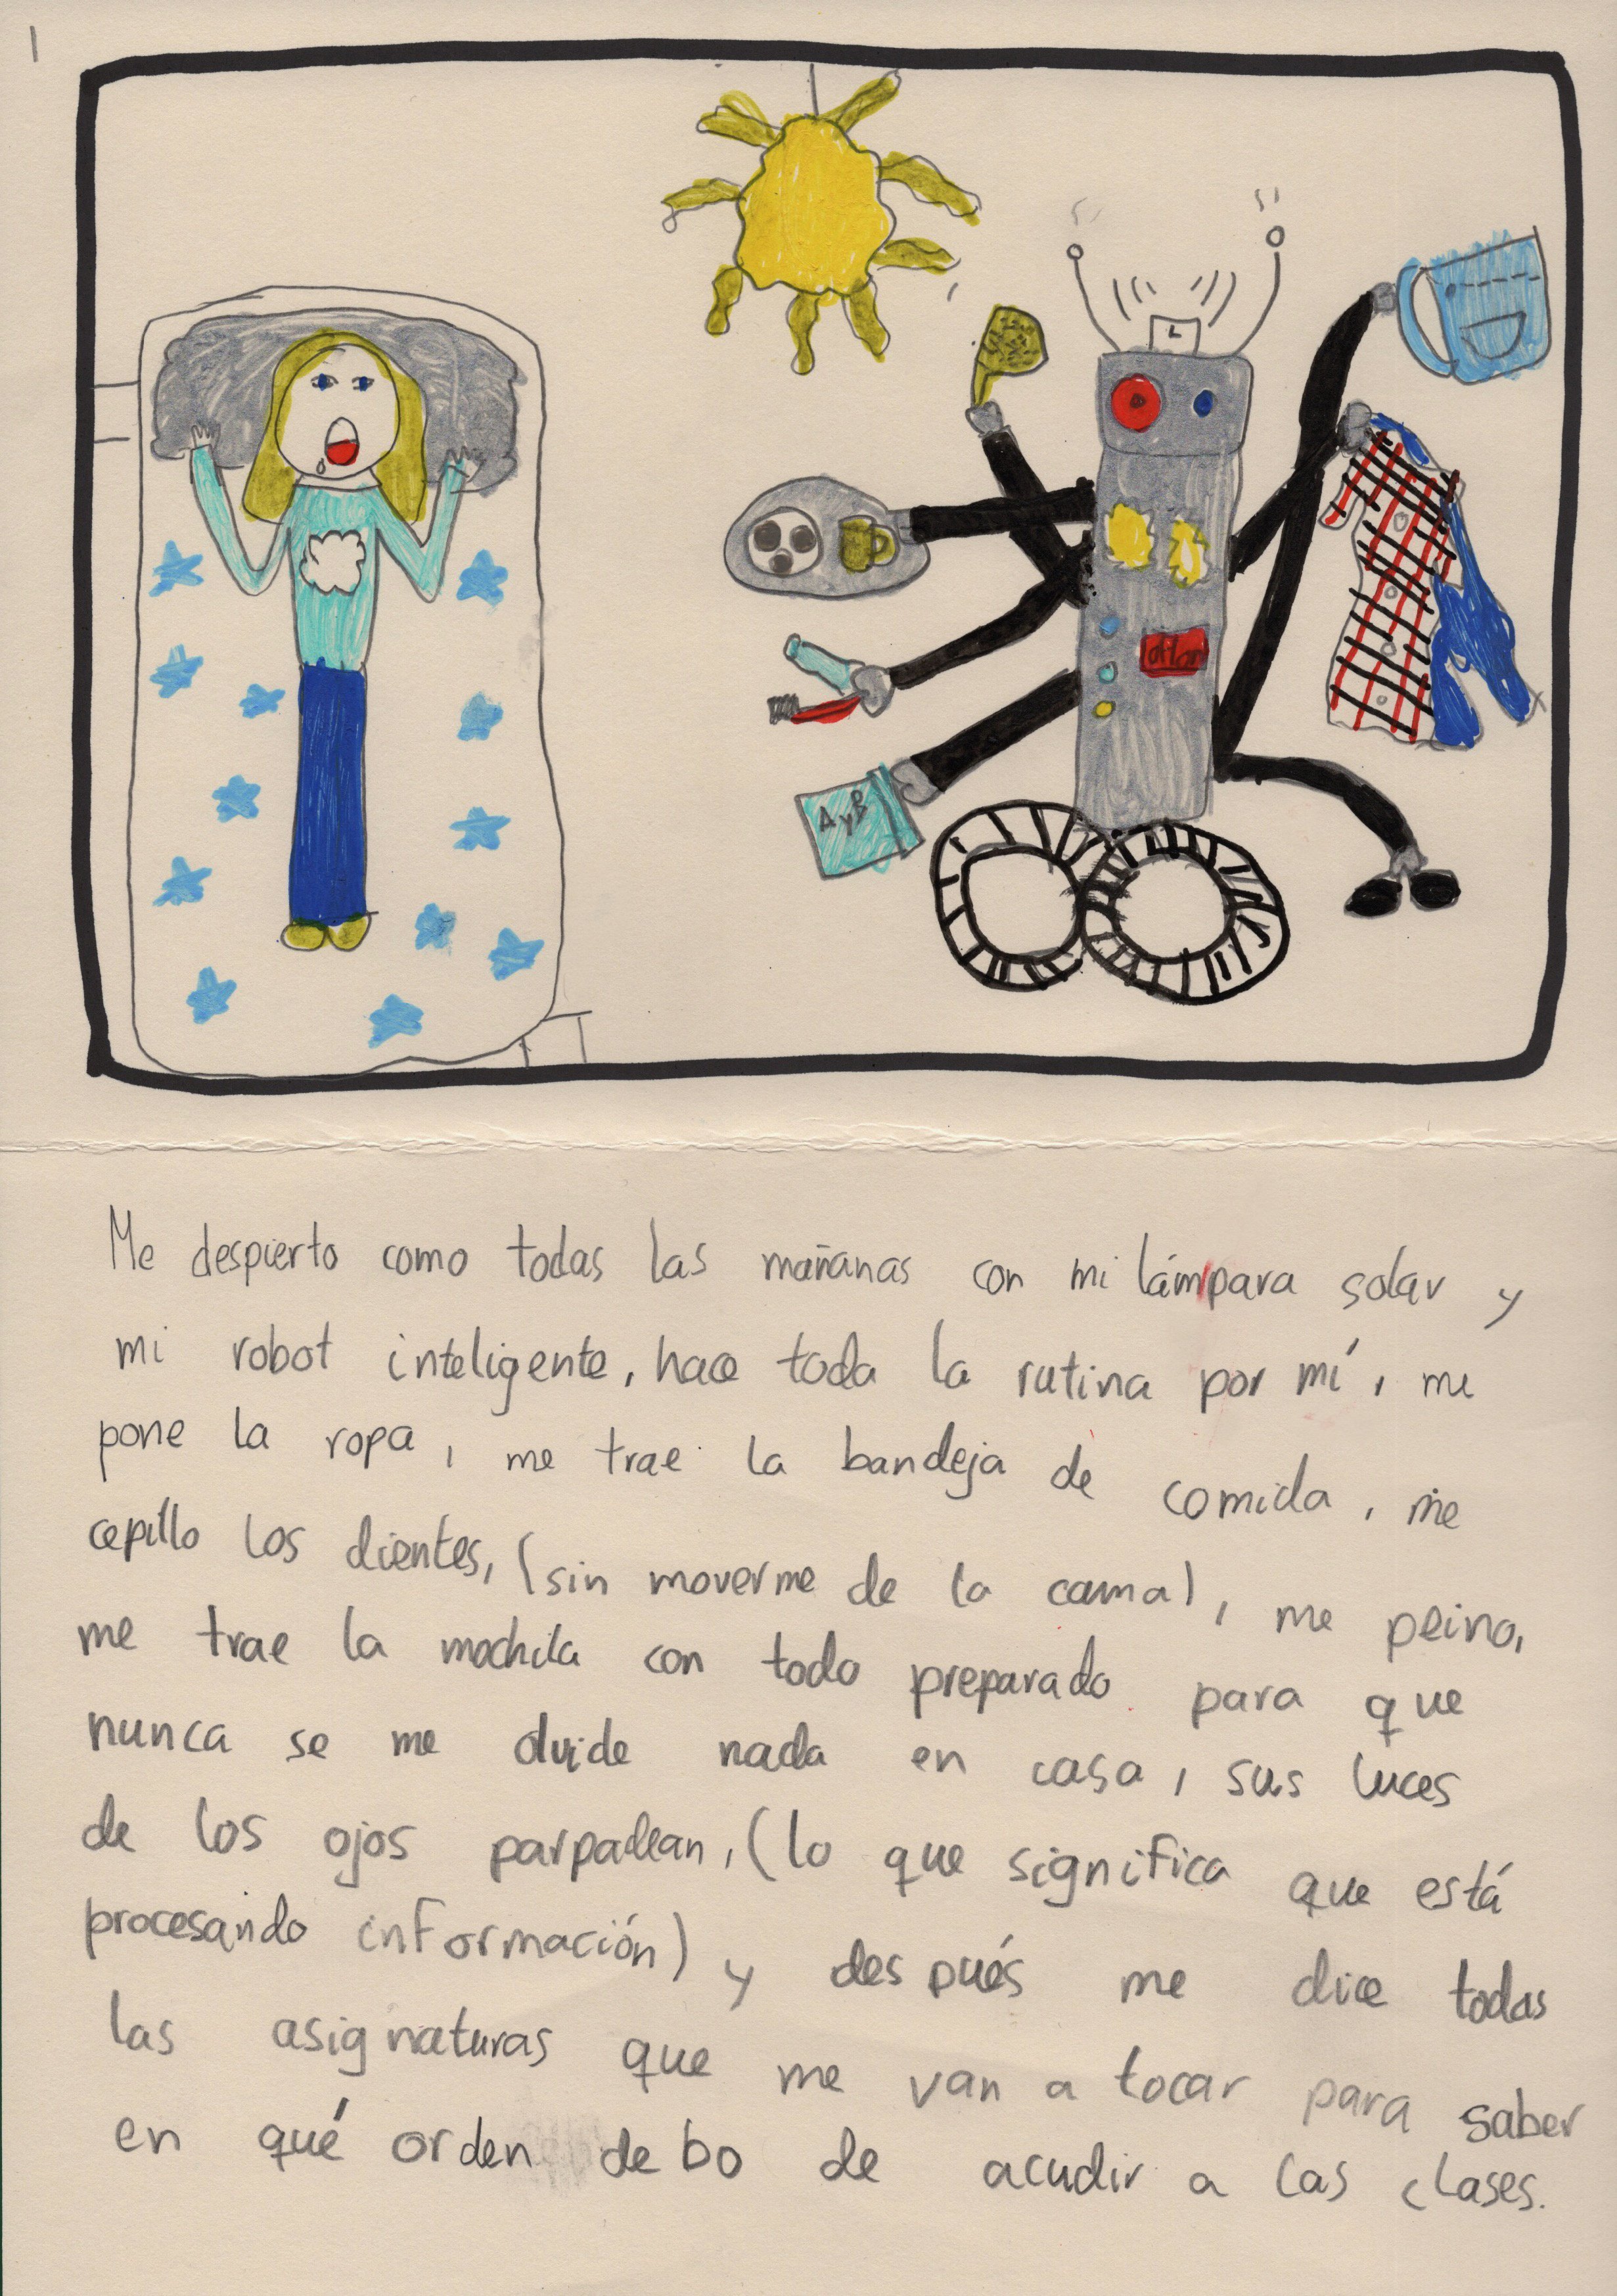 1
L
AyB
Me despierto como todas las mañanas con mi lámpara solar y
mi robot inteligente, hace toda la rutina por mí, me
pone la ropa, me trae la bandeja de comida, me
cepillo los dientes, (sin moverme de la cama), me peino,
me trae la mochila con todo preparado para que
nunca se me olvide nada en casa, sus luces
de los ojos parpadean, (lo que significa que está
procesando información) y después me dice todas
las asignaturas que me van a tocar para saber
en qué orden debo de acudir a las clases.